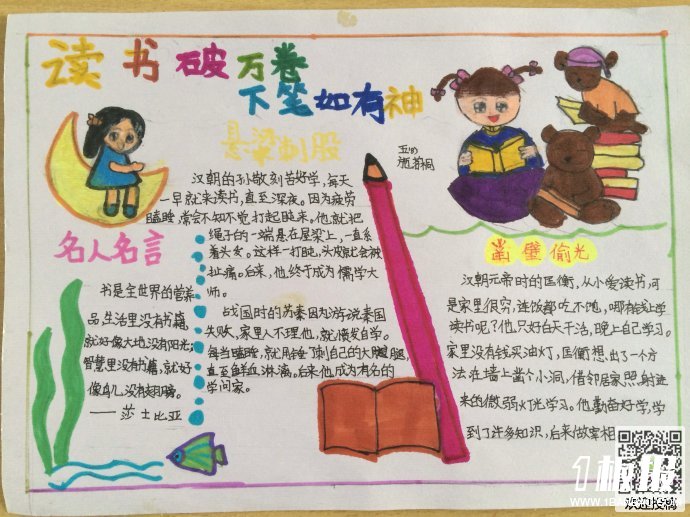 读书破万卷
下笔如有神
悬梁刺股
汉朝的孙敬刻苦好学，每天
一早就来读书，直至深夜。因为疲劳
瞌睡，常会不知不觉打起盹来。他就把
绳子的一端悬在屋梁上，一直系
着头发。这样一打盹，头皮就会被
扯痛。后来，他终于成为儒学大
师。
战国时的苏秦因为游说秦国
失败，家里人不理他，就愤发自学。
每当瞌睡，就用锤了刺自己的大腿腿，
直至鲜血淋漓。后来他成为有名的
学问家。
名人名言
书是全世界的营养
品，生活里没有书籍，
就好像大地没有阳光；
智慧里没有书籍，就好
像鸟儿没有翅膀。
——莎士比亚
凿壁偷光
汉朝元帝时的匡衡，从小爱读书，可
是家里很穷，连饭都吃不饱，哪有钱上学
读书呢？他只好白天干活，晚上自己学习。
家里没有钱买油灯，匡衡想出了一个方
法：在墙上凿个小洞，借邻居家照射过
来的微弱灯光学习。他勤奋好学，学
到了许多知识，后来做宰相
1板报
欢迎投稿